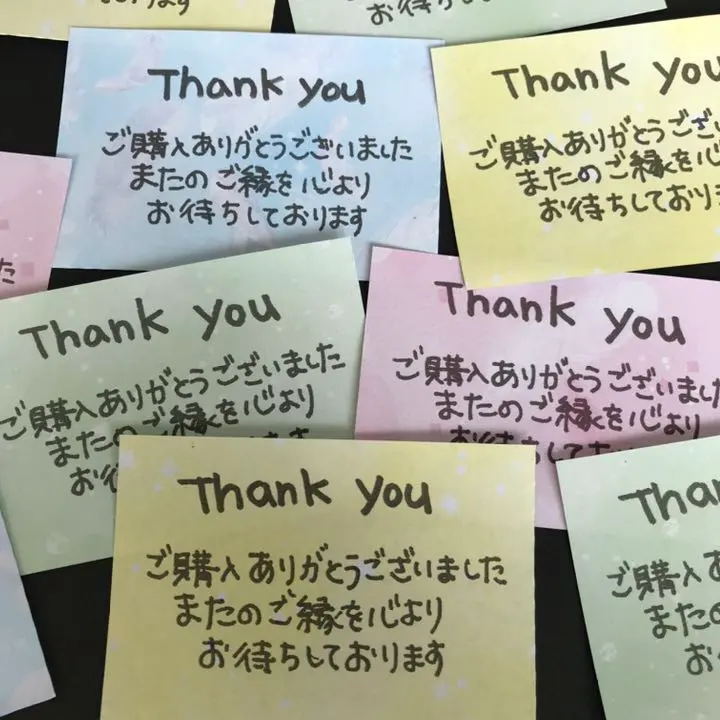 おります
お待ちしております
Thank you
ご購入ありがとうございました
またのご縁を心より
お待ちしております
Thank you
ご購入ありがとうござい
またのご縁を心より
お待ちしております
た
Thank you
ご購入ありがとうございました
またのご縁を心より
お待
Thank you
ご購入ありがとうございました
またのご縁を心より
お待ちして
Thank you
ご購入ありがとうございました
またのご縁を心より
お待ちしております
Than
ご購入あ
またの
お待